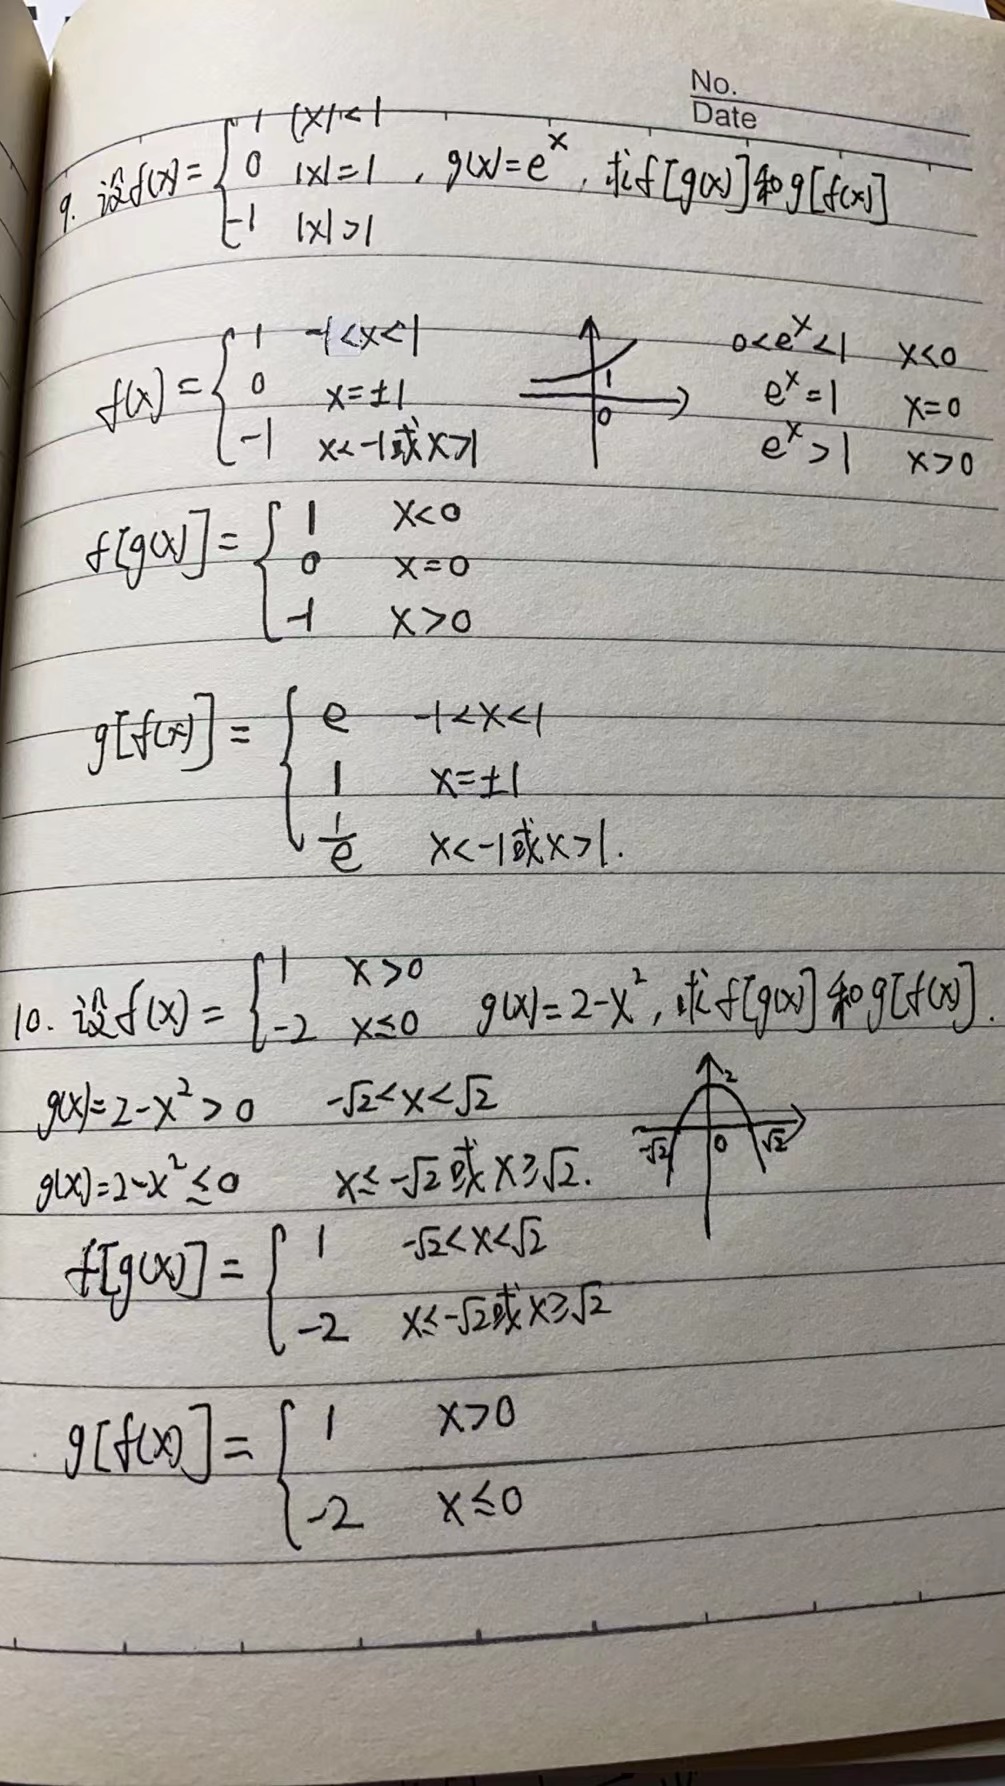 No.
Date
9. 设f(x)={1 |x|<1
0 |x|=1 , g(x)=e^x , 求f[g(x)]和g[f(x)]
-1 |x|>1
f(x)={1 -1<x<1
0 x=±1
-1 x<-1或x>1
1
0
0<e^x<1 x<0
e^x=1 x=0
e^x>1 x>0
f[g(x)]={1 x<0
0 x=0
-1 x>0
g[f(x)]={e -1<x<1
1 x=±1
1/e x<-1或x>1.
10. 设f(x)={1 x>0
-2 x≤0 g(x)=2-x², 求f[g(x)]和g[f(x)].
g(x)=2-x²>0 -√2<x<√2
g(x)=2-x²≤0 x≤-√2或x≥√2.
2
-√2 0 √2
f[g(x)]={1 -√2<x<√2
-2 x≤-√2或x≥√2
g[f(x)]={1 x>0
-2 x≤0